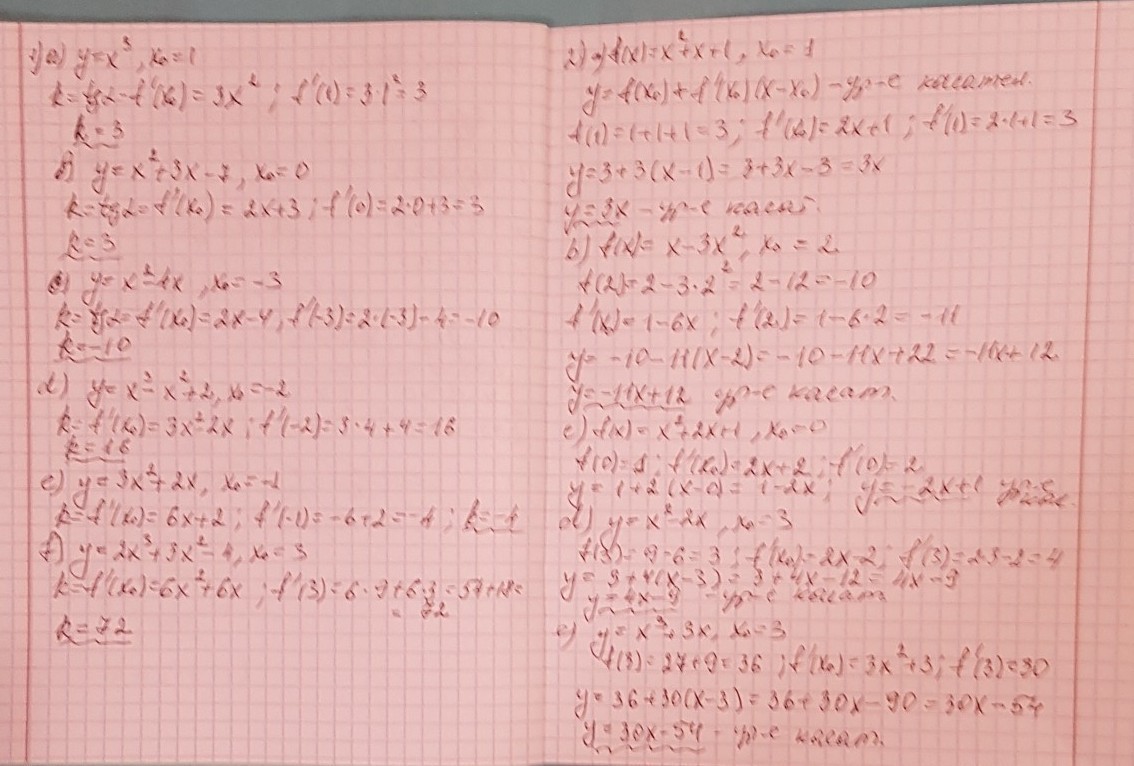 1) a) y=x³, x₀=1
k=tgα=f'(x₀)=3x²; f'(1)=3·1²=3
k=3
b) y=x²+3x-7, x₀=0
k=tgα=f'(x₀)=2x+3; f'(0)=2·0+3=3
k=3
c) y=x²-4x, x₀=-3
k=tgα=f'(x₀)=2x-4, f'(-3)=2·(-3)-4=-10
k=-10
d) y=x³-x²+2, x₀=-2
k=f'(x₀)=3x²-2x; f'(-2)=3·4+4=16
k=16
e) y=3x²+2x, x₀=-1
k=f'(x₀)=6x+2; f'(-1)=-6+2=-4; k=-4
f) y=2x³+3x²-4, x₀=3
k=f'(x₀)=6x²+6x; f'(3)=6·9+6·3=54+18=
=72
k=72
2) a) f(x)=x²+x+1, x₀=1
y=f(x₀)+f'(x₀)(x-x₀) - ур-е касател.
f(1)=1+1+1=3; f'(x₀)=2x+1; f'(1)=2·1+1=3
y=3+3(x-1)=3+3x-3=3x
y=3x - ур-е касат.
b) f(x)=x-3x², x₀=2
f(2)=2-3·2²=2-12=-10
f'(x)=1-6x; f'(2)=1-6·2=-11
y=-10-11(x-2)=-10-11x+22=-11x+12
y=-11x+12 ур-е касат.
c) f(x)=x²+2x+1, x₀=0
f(0)=1; f'(x₀)=2x+2; f'(0)=2
y=1+2(x-0)=1-2x; y=-2x+1 ур-е касат.
d) y=x²-2x, x₀=3
f(3)=9-6=3; f'(x₀)=2x-2; f'(3)=2·3-2=4
y=3+4(x-3)=3+4x-12=4x-9
y=4x-9 - ур-е касат.
e) y=x³+3x, x₀=3
f(3)=27+9=36; f'(x₀)=3x²+3; f'(3)=30
y=36+30(x-3)=36+30x-90=30x-54
y=30x-54 - ур-е касат.